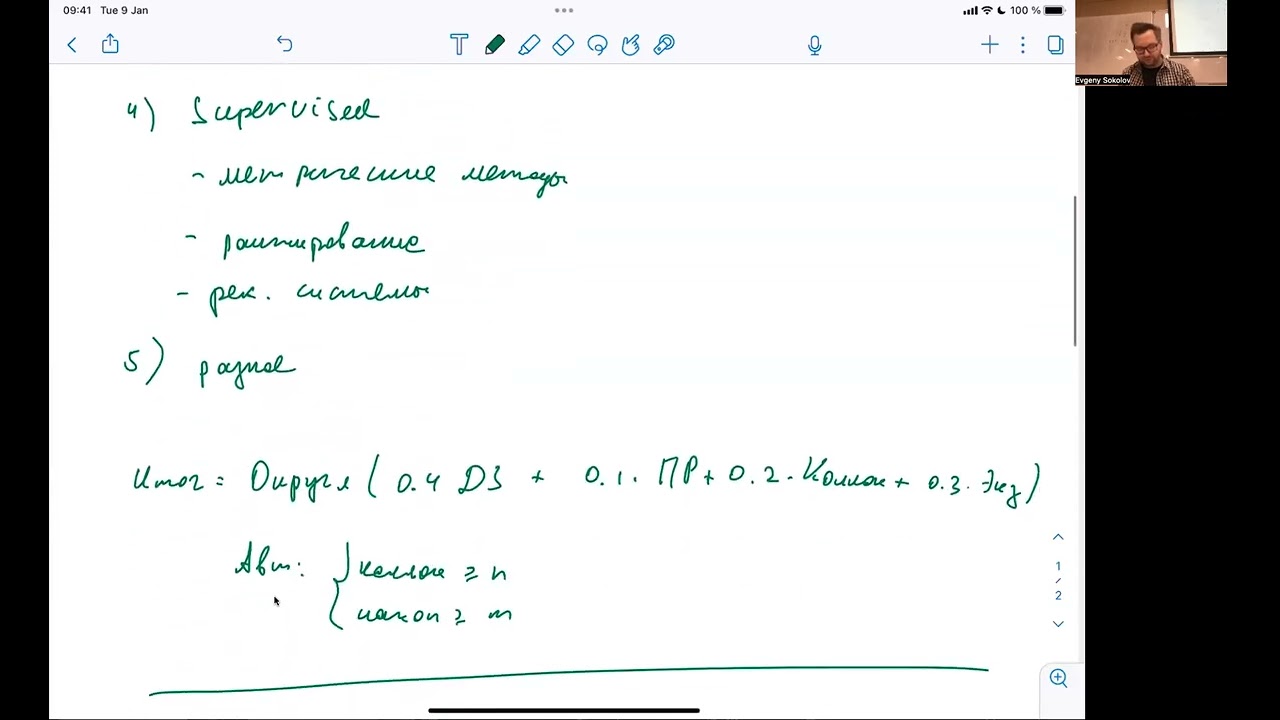 09:41 Tue 9 Jan 100 %
Evgeny Sokolov
4) Supervised
- метрические методы
- ранжирование
- рек. системы
5) разное
Итог = Округл ( 0.4 ДЗ + 0.1. ПР + 0.2 . Коллок + 0.3. Экз )
Авт: { коллок ≥ n
накоп ≥ m
1
/
2